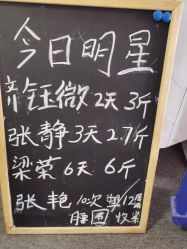 今日明星
钰微2天3斤
张静3天2.7斤
梁荣6天6斤
张艳10次
腰围收